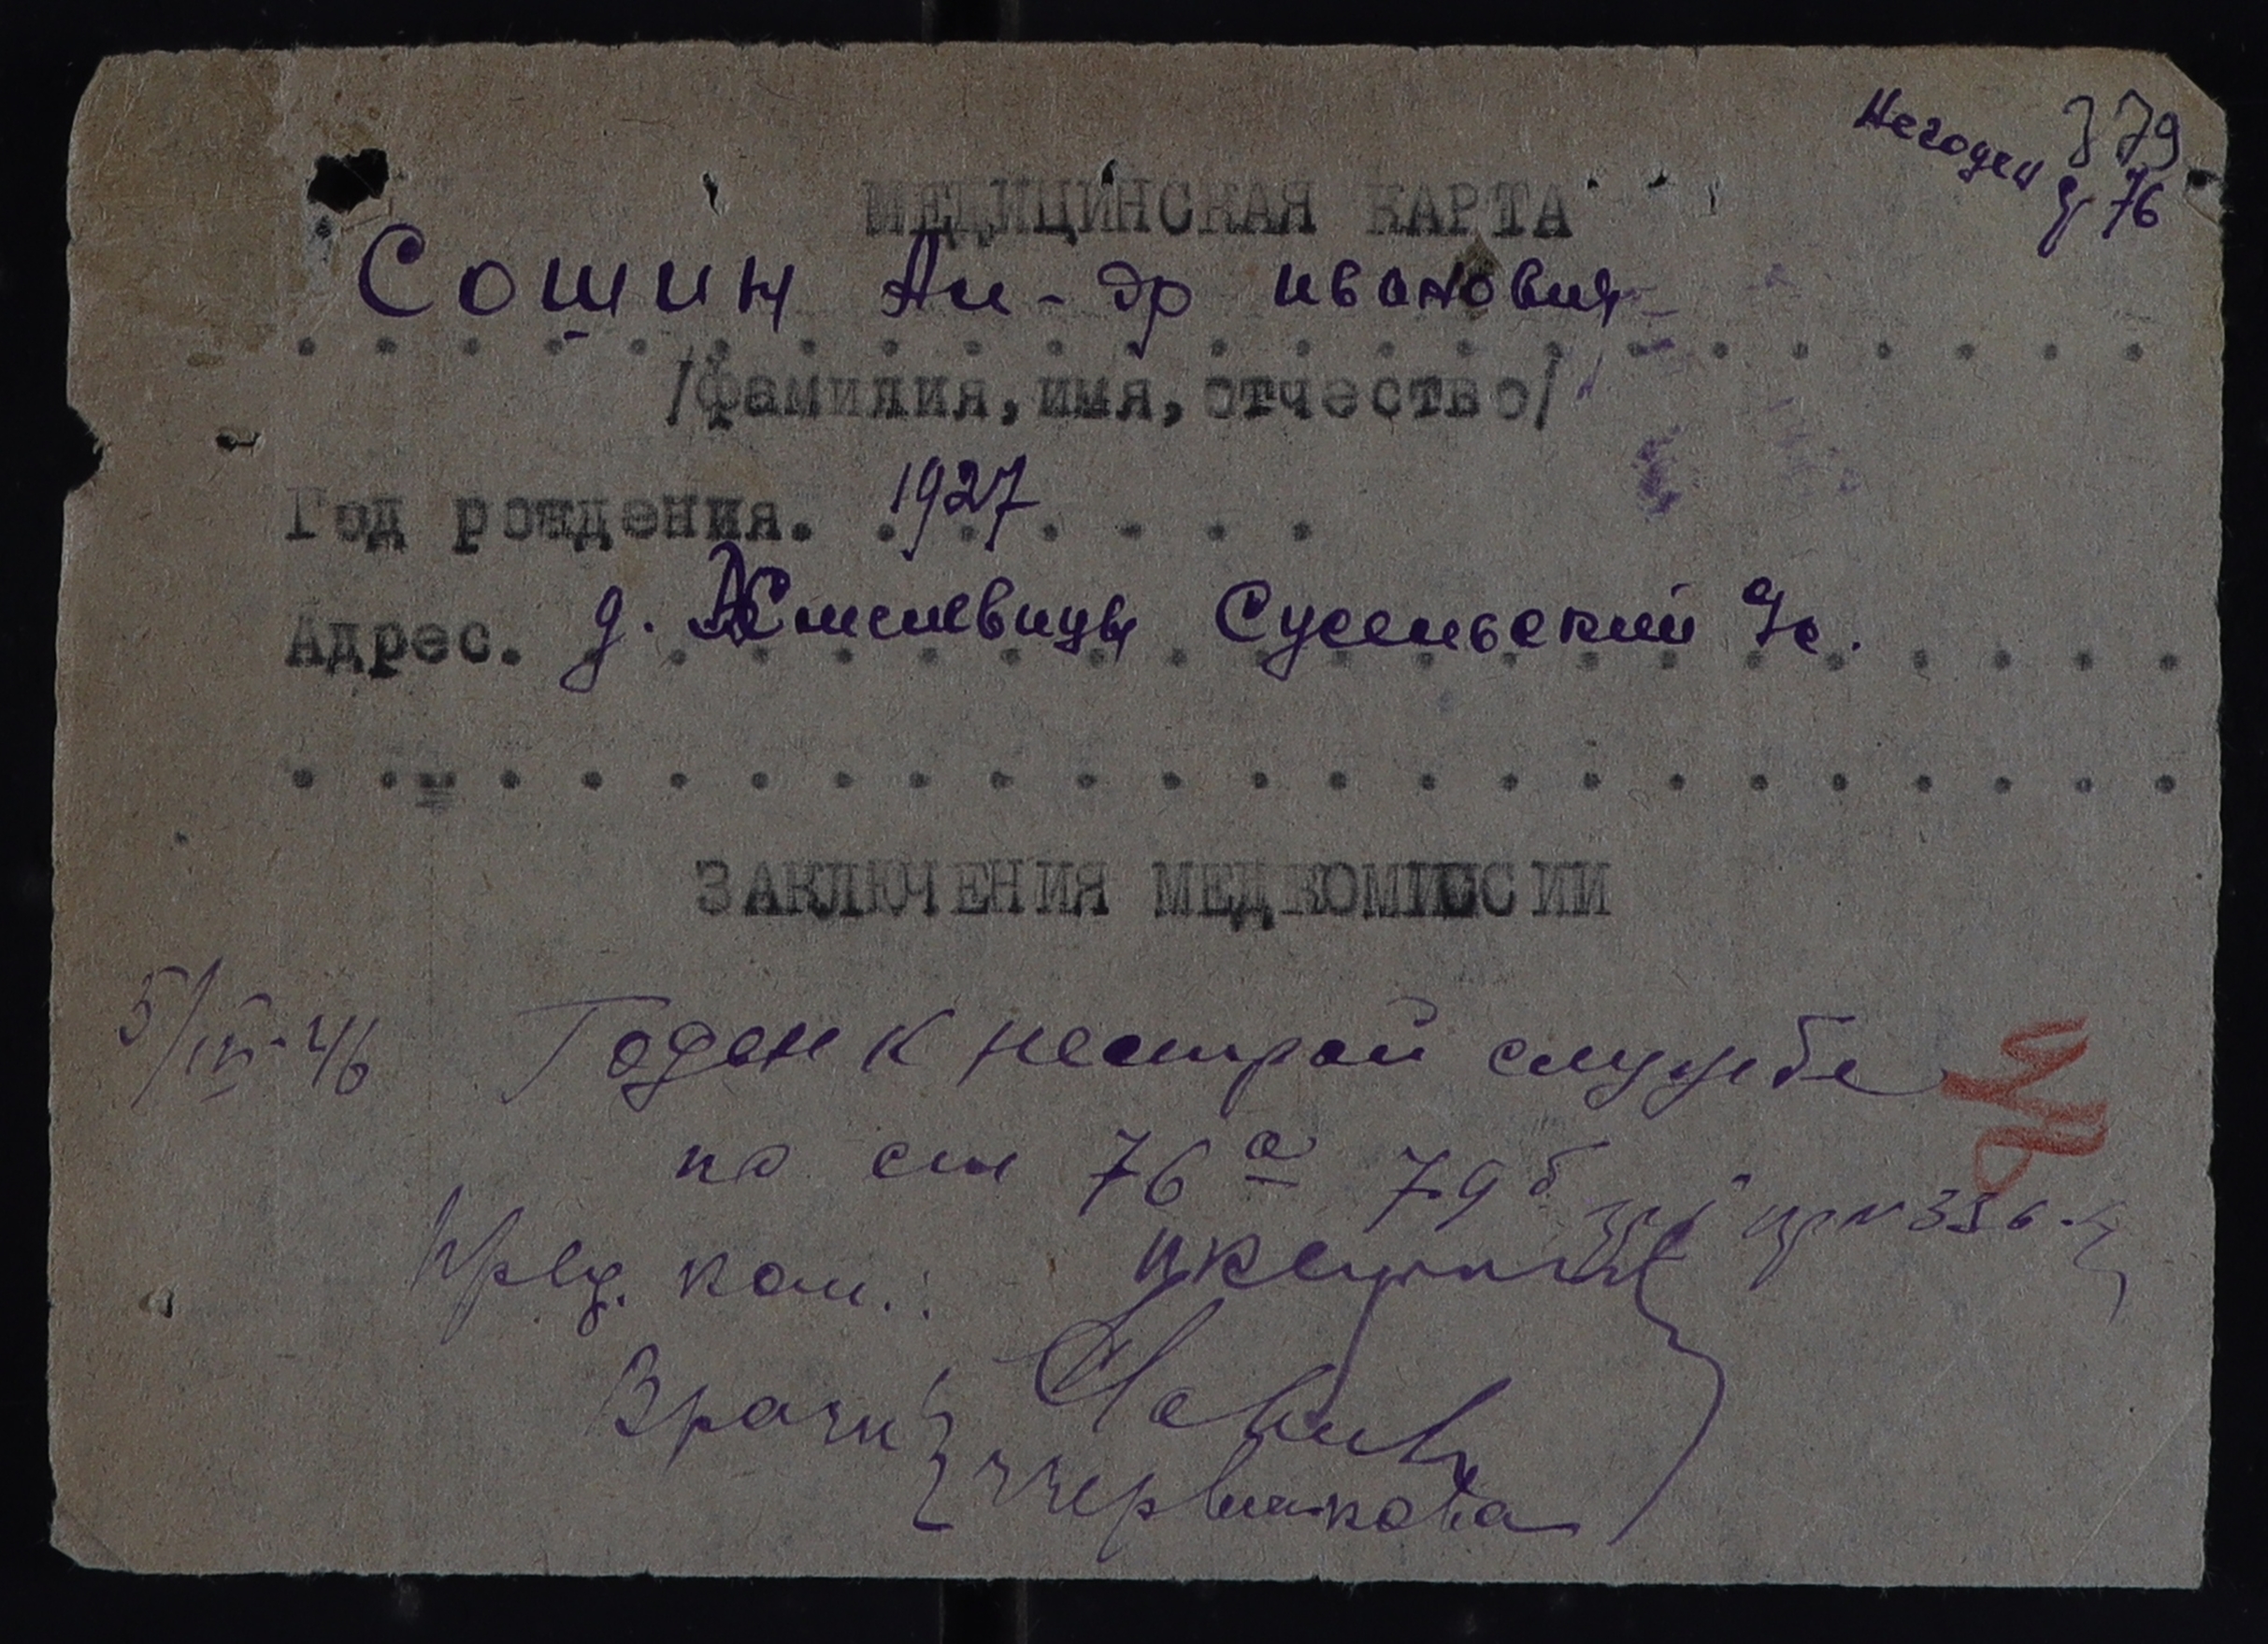 Негоден 379
у 76
МЕДИЦИНСКАЯ КАРТА
Сошин Ал-др Иванович
/фамилия, имя, отчество/
Год рождения. 1927
Адрес. д. Сусельский с/с.
ЗАКЛЮЧЕНИЯ МЕДКОМИССИИ
5/IV-46 Годен к нестрой службе
по ст 76а 79б пр N 336-
Пред. ком.:
Врачи
Червякова